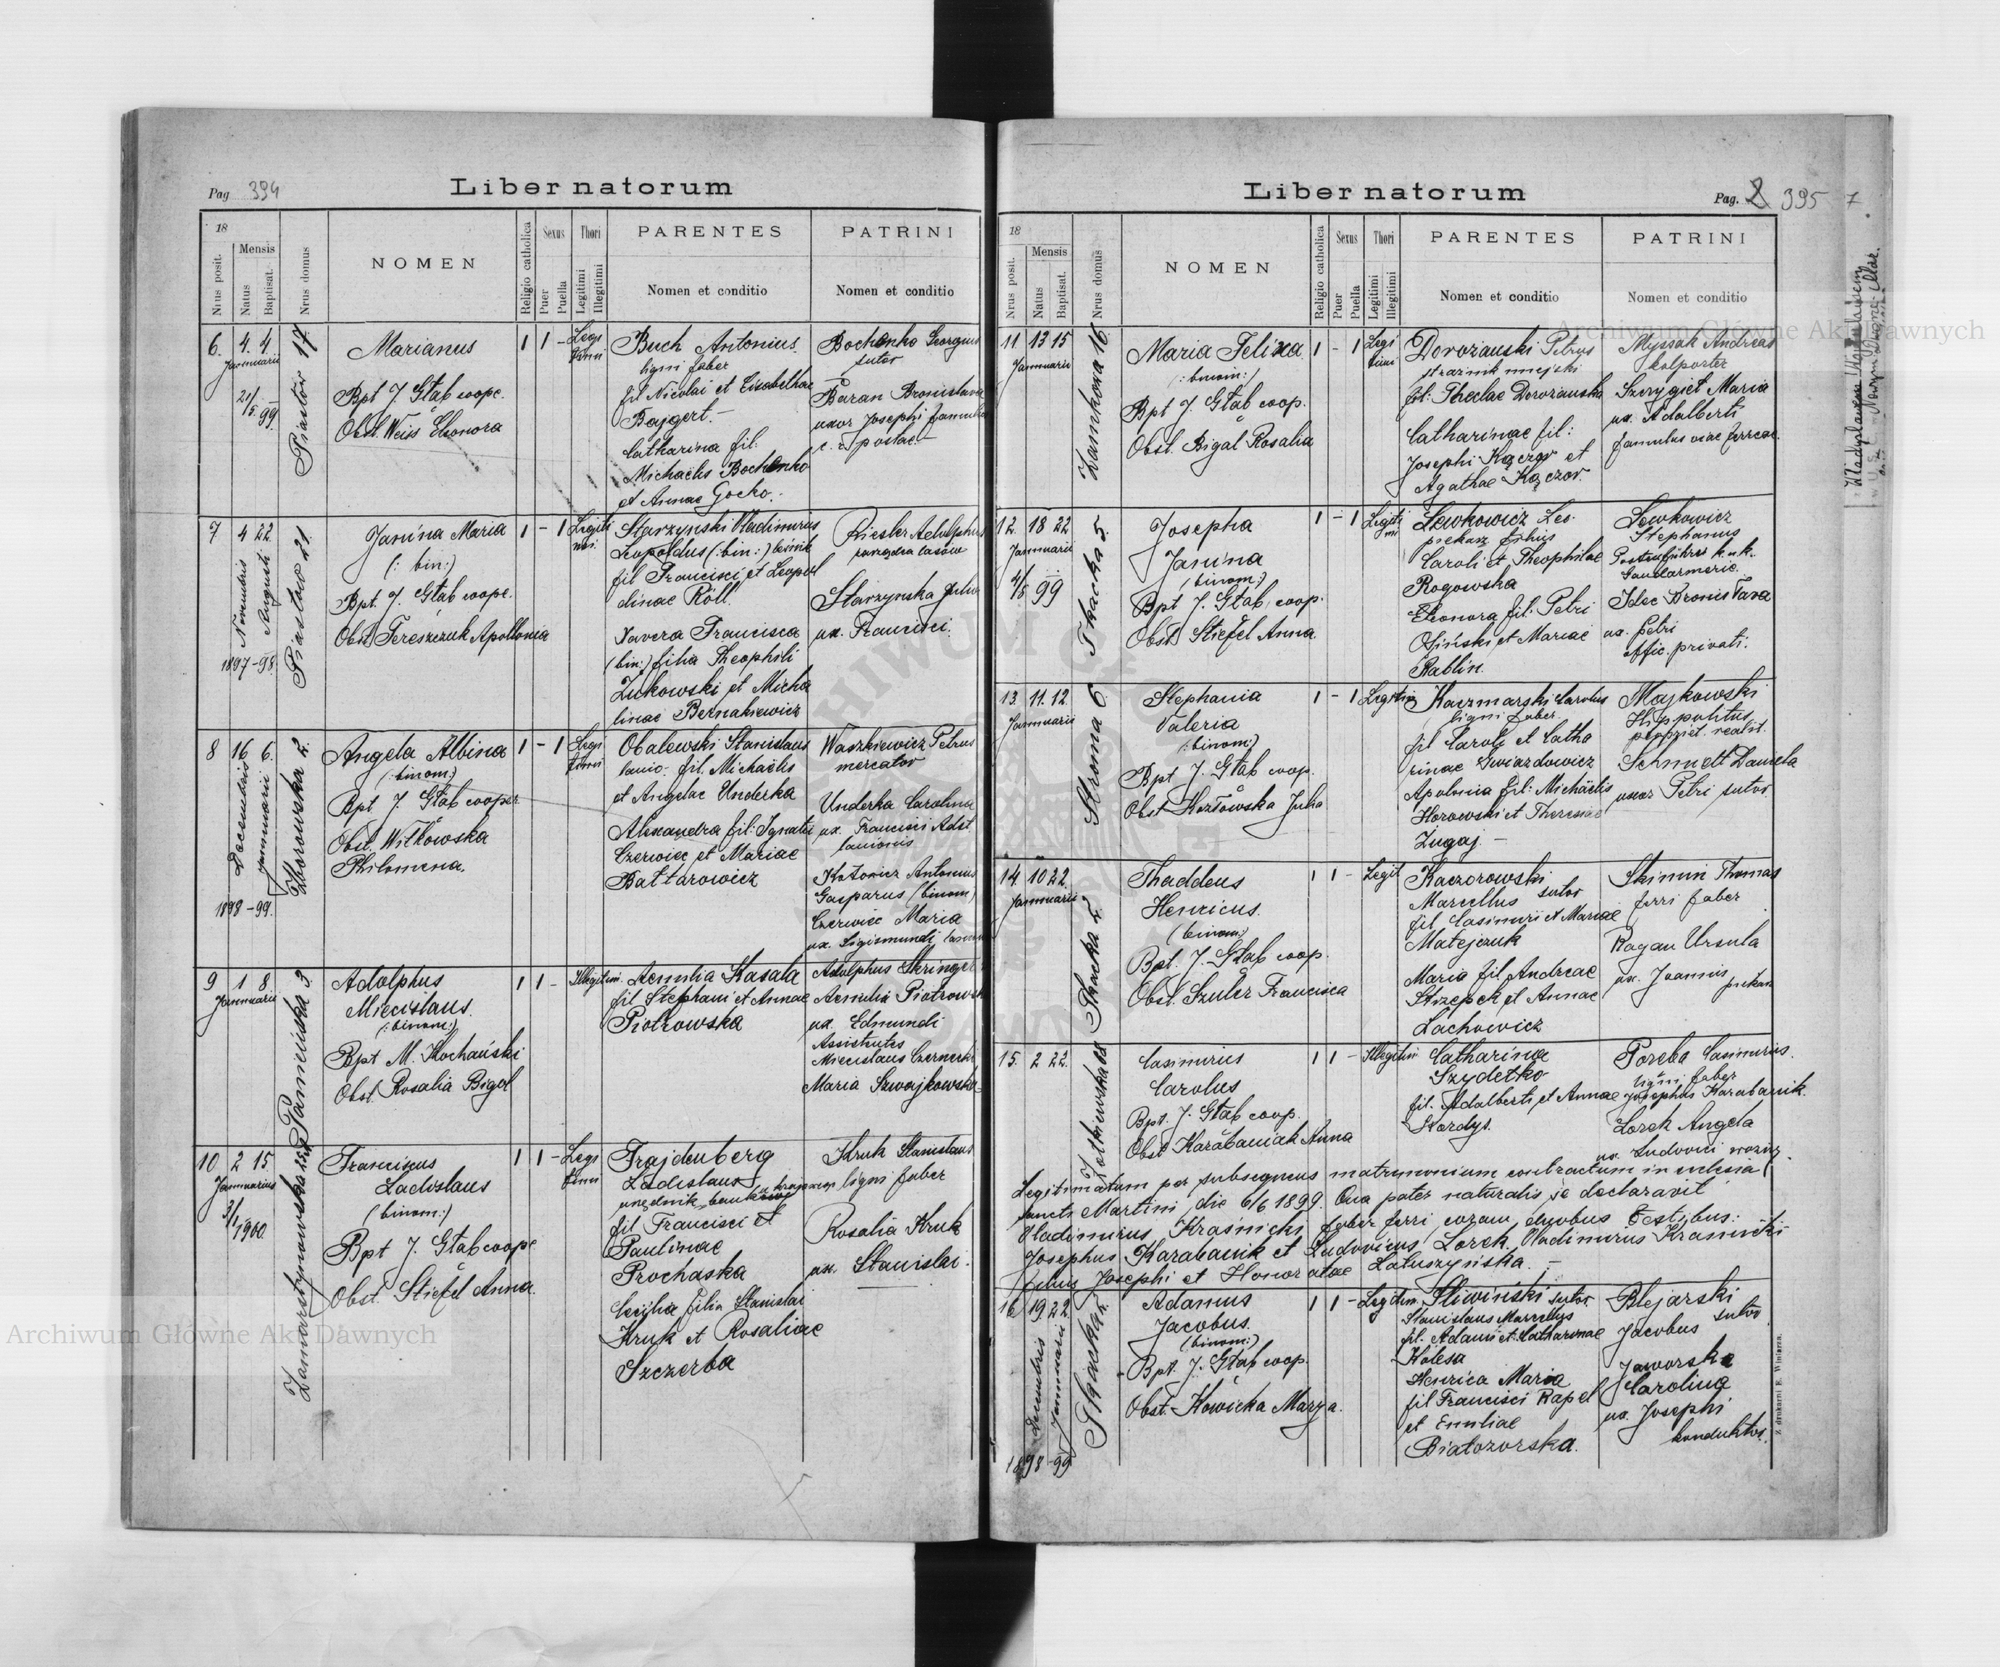 Pag. 394
Liber natorum
18
Nrus posit.
Mensis
Natus
Baptisat.
Nrus domus
NOMEN
Religio catholica
Sexus
Puer
Puella
Thori
Legitimi
Illegitimi
PARENTES
Nomen et conditio
PATRINI
Nomen et conditio
6. 4. 4.
Januarii
21/5 99
Piastów 17
Marianus
Bpt J. Głąb coope.
Obst. Weiss Eleonora
1 1 - Legi
timi
Buch Antonius
ligni faber
fil Nicolai et Elisabethae
Bajgert. -
Catharina fil:
Michaelis Bochenko
et Annae Gocko.
Bochenko Georgius
sutor
Baran Bronislava
uxor Josephi famuli
c. r. postae
7 4 22
Novembris Augusti
1897-98.
Piastów 21.
Janina Maria
(: bin:)
Bpt. J. Głąb coope.
Obst. Tereszczuk Apollonia
1 - 1 Legiti
mi.
Starzyński Vladimirus
Leopoldus (: bin:) leśnik
fil Francisci et Leopol
dinae Röll.
Xavera Francisca
(bin:) filia Theophili
Żukowski et Micha
linae Bernakiewicz
Riesler Adolphus
zarządca lasów
Starzynska Julia
ux. Francisci.
8 16 6.
Decembris Januarii
1898-99.
Zborowska 2.
Angela Albina
(binom:)
Bpt J. Głąb cooper
Obst. Witkowska
Philomena.
1 - 1 Legi
timi
Obalewski Stanislaus
lanio. fil. Michaëlis
et Angelae Underka
Alexandra fil: Ignatii
Czerwiec et Mariae
Battarowicz
Waszkiewicz Petrus
mercator
Underka Carolina
ux. Francisci Adst.
lanionis
Kotowicz Antonius
Gasparus (binom)
Czerwiec Maria
ux. Sigismundi
9 1 8
Januarii
Panieńska 3.
Adolphus
Miecislaus.
(:binom:)
Bpt M. Kochański
Obst. Rosalia Bigel
1 1 - Illegitimi
Aemilia Kasala
fil Stephani et Annae
Piotrowska
Adolphus Skringer
Aemilia Piotrowska
ux. Edmundi
Assistentes
Miecislaus Czernecki
Maria Szwajkowska
10 2 15.
Januarius
3/1 1900.
Zamarstynowska
Franciscus
Ladislaus
(binom:)
Bpt J. Głąb coope
Obst. Stiefel Anna.
1 1 - Legi
timi
Frajdenberg
Ladislaus
urzędnik bankowy
fil Francisci et
Paulinae
Prochaska
Cecylia filia Stanislai
Kruk et Rosaliae
Szczerba
Kruk Stanislaus
ligni faber
Rosalia Kruk
ux. Stanislai.
Liber natorum
Pag. 2 395
7
18
Nrus posit.
Mensis
Natus
Baptisat.
Nrus domus
NOMEN
Religio catholica
Sexus
Puer
Puella
Thori
Legitimi
Illegitimi
PARENTES
Nomen et conditio
PATRINI
Nomen et conditio
11 13 15
Januarii
Zamkowa 16
Maria Felixa
(:binom:)
Bpt J. Głąb coop.
Obst. Bigal Rosalia
1 - 1 Legi
timi
Dorożauski Petrus
strażnik miejski
fil: Theclae Dorożauska
Catharinae fil:
Josephi Kączor et
Agathae Kączor.
Myssak Andreas
kolporter
Szczygieł Maria
ux. Adalberti
famulus viae ferreae.
12. 18 22
Januarii
4/8 99
Tkacka 5.
Josepha
Janina
(binom:)
Bpt J. Głąb, coop.
Obst. Stiefel Anna
1 - 1 Legiti
mi
Lewkowicz Les.
piekarz filius
Caroli et Theophilae
Rogowska
Eleonora fil: Petri
Osiński et Mariae
Rablin.
Lewkowicz
Stephanus
Postenführer k.u.k.
Gendarmerie.
Idec Bronislava
ux. Petri
offic. privati.
13. 11. 12.
Januarii
Stroma 6
Stephania
Valeria
(:binom:)
Bpt J. Głąb coop.
Obst Kozłowska Julia
1 - 1 Legitim
Kaczmarski Carolus
ligni faber
fil Caroli et Catha
rinae Gwiazdowicz
Apolonia fil: Michaëlis
Horowski et Theresiae
Zugaj -
Majkowski
Hippolitus
propriet. realit.
Schmidt Daniela
uxor Petri sutor.
14. 10 22.
Januarii
Tkacka 2
Thaddeus
Henricus.
(binom:)
Bpt. J. Głąb coop.
Obst. Szuler Francisca
1 1 - Legit
Kaczorowski
Marcellus sutor
fil Casimiri et Mariae
Matejczuk
Maria fil Andreae
Strzępek et Annae
Lachowicz
Skimin Thomas
ferri faber
Kagan Ursula
ux. Joannis piekarz
15. 2 22.
Żółkiewska 68
Casimirus
Carolus
Bpt. J. Głąb coop.
Obst Karabaniak Anna
1 1 - Illegitimi
Catharina
Szydełko
fil. Adalberti et Annae
Kordys.
Poreba Casimirus.
ligni faber
Josephus Karabanik.
Lorek Angela
ux. Ludovici woźny.
Legitimatum per subsequens matrimonium contractum in ecclesia
sancti Martini, die 6/6 1899. Qua pater naturalis se declaravit
Vladimirus Kraśnicki, faber ferri coram duobus testibus:
Josephus Karabanik et Ludovicus Lorek. Vladimirus Kraśnicki
filius Josephi et Honoratae Latuszyńska. -
16 19. 22.
Decembris Januarii
1898-99
Tkacka
Adamus
Jacobus.
(binom:)
Bpt. J. Głąb coop.
Obst. Kowicka Marya.
1 1 - Legitim.
Śliwiński sutor
Stanislaus Marcellus
fil. Adami et Catharinae
Kolesa
Henrica Maria
fil Francisci Rapel
et Emiliae
Białozorska.
Blejarski
Jacobus sutor
Jaworska
Carolina
ux. Josephi
konduktor.
Z drukarni E. Winiarza.
Archiwum Główne Akt Dawnych
Archiwum Główne Akt Dawnych